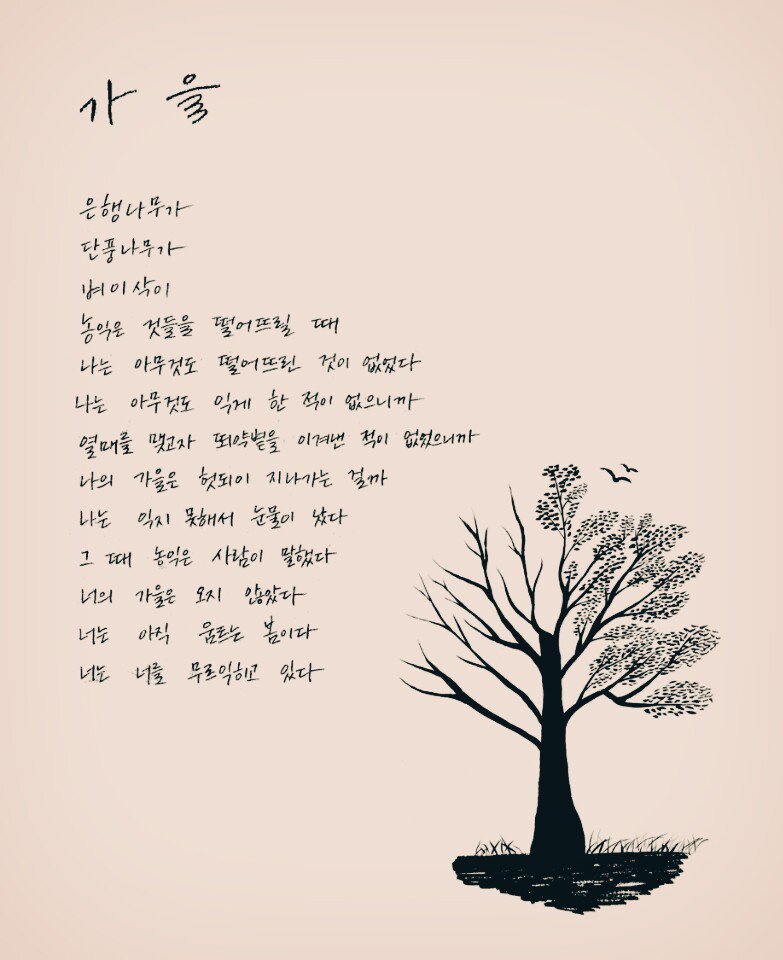 가을
은행나무가
단풍나무가
벼이삭이
농익은 것들을 떨어뜨릴 때
나는 아무것도 떨어뜨린 것이 없었다
나는 아무것도 익게 한 적이 없으니까
열매를 맺고자 뙤약볕을 이겨낸 적이 없었으니까
나의 가을은 헛되이 지나가는 걸까
나는 익지 못해서 눈물이 났다
그 때 농익은 사람이 말했다
너의 가을은 오지 않았다
너는 아직 움트는 봄이다
너는 너를 무르익히고 있다